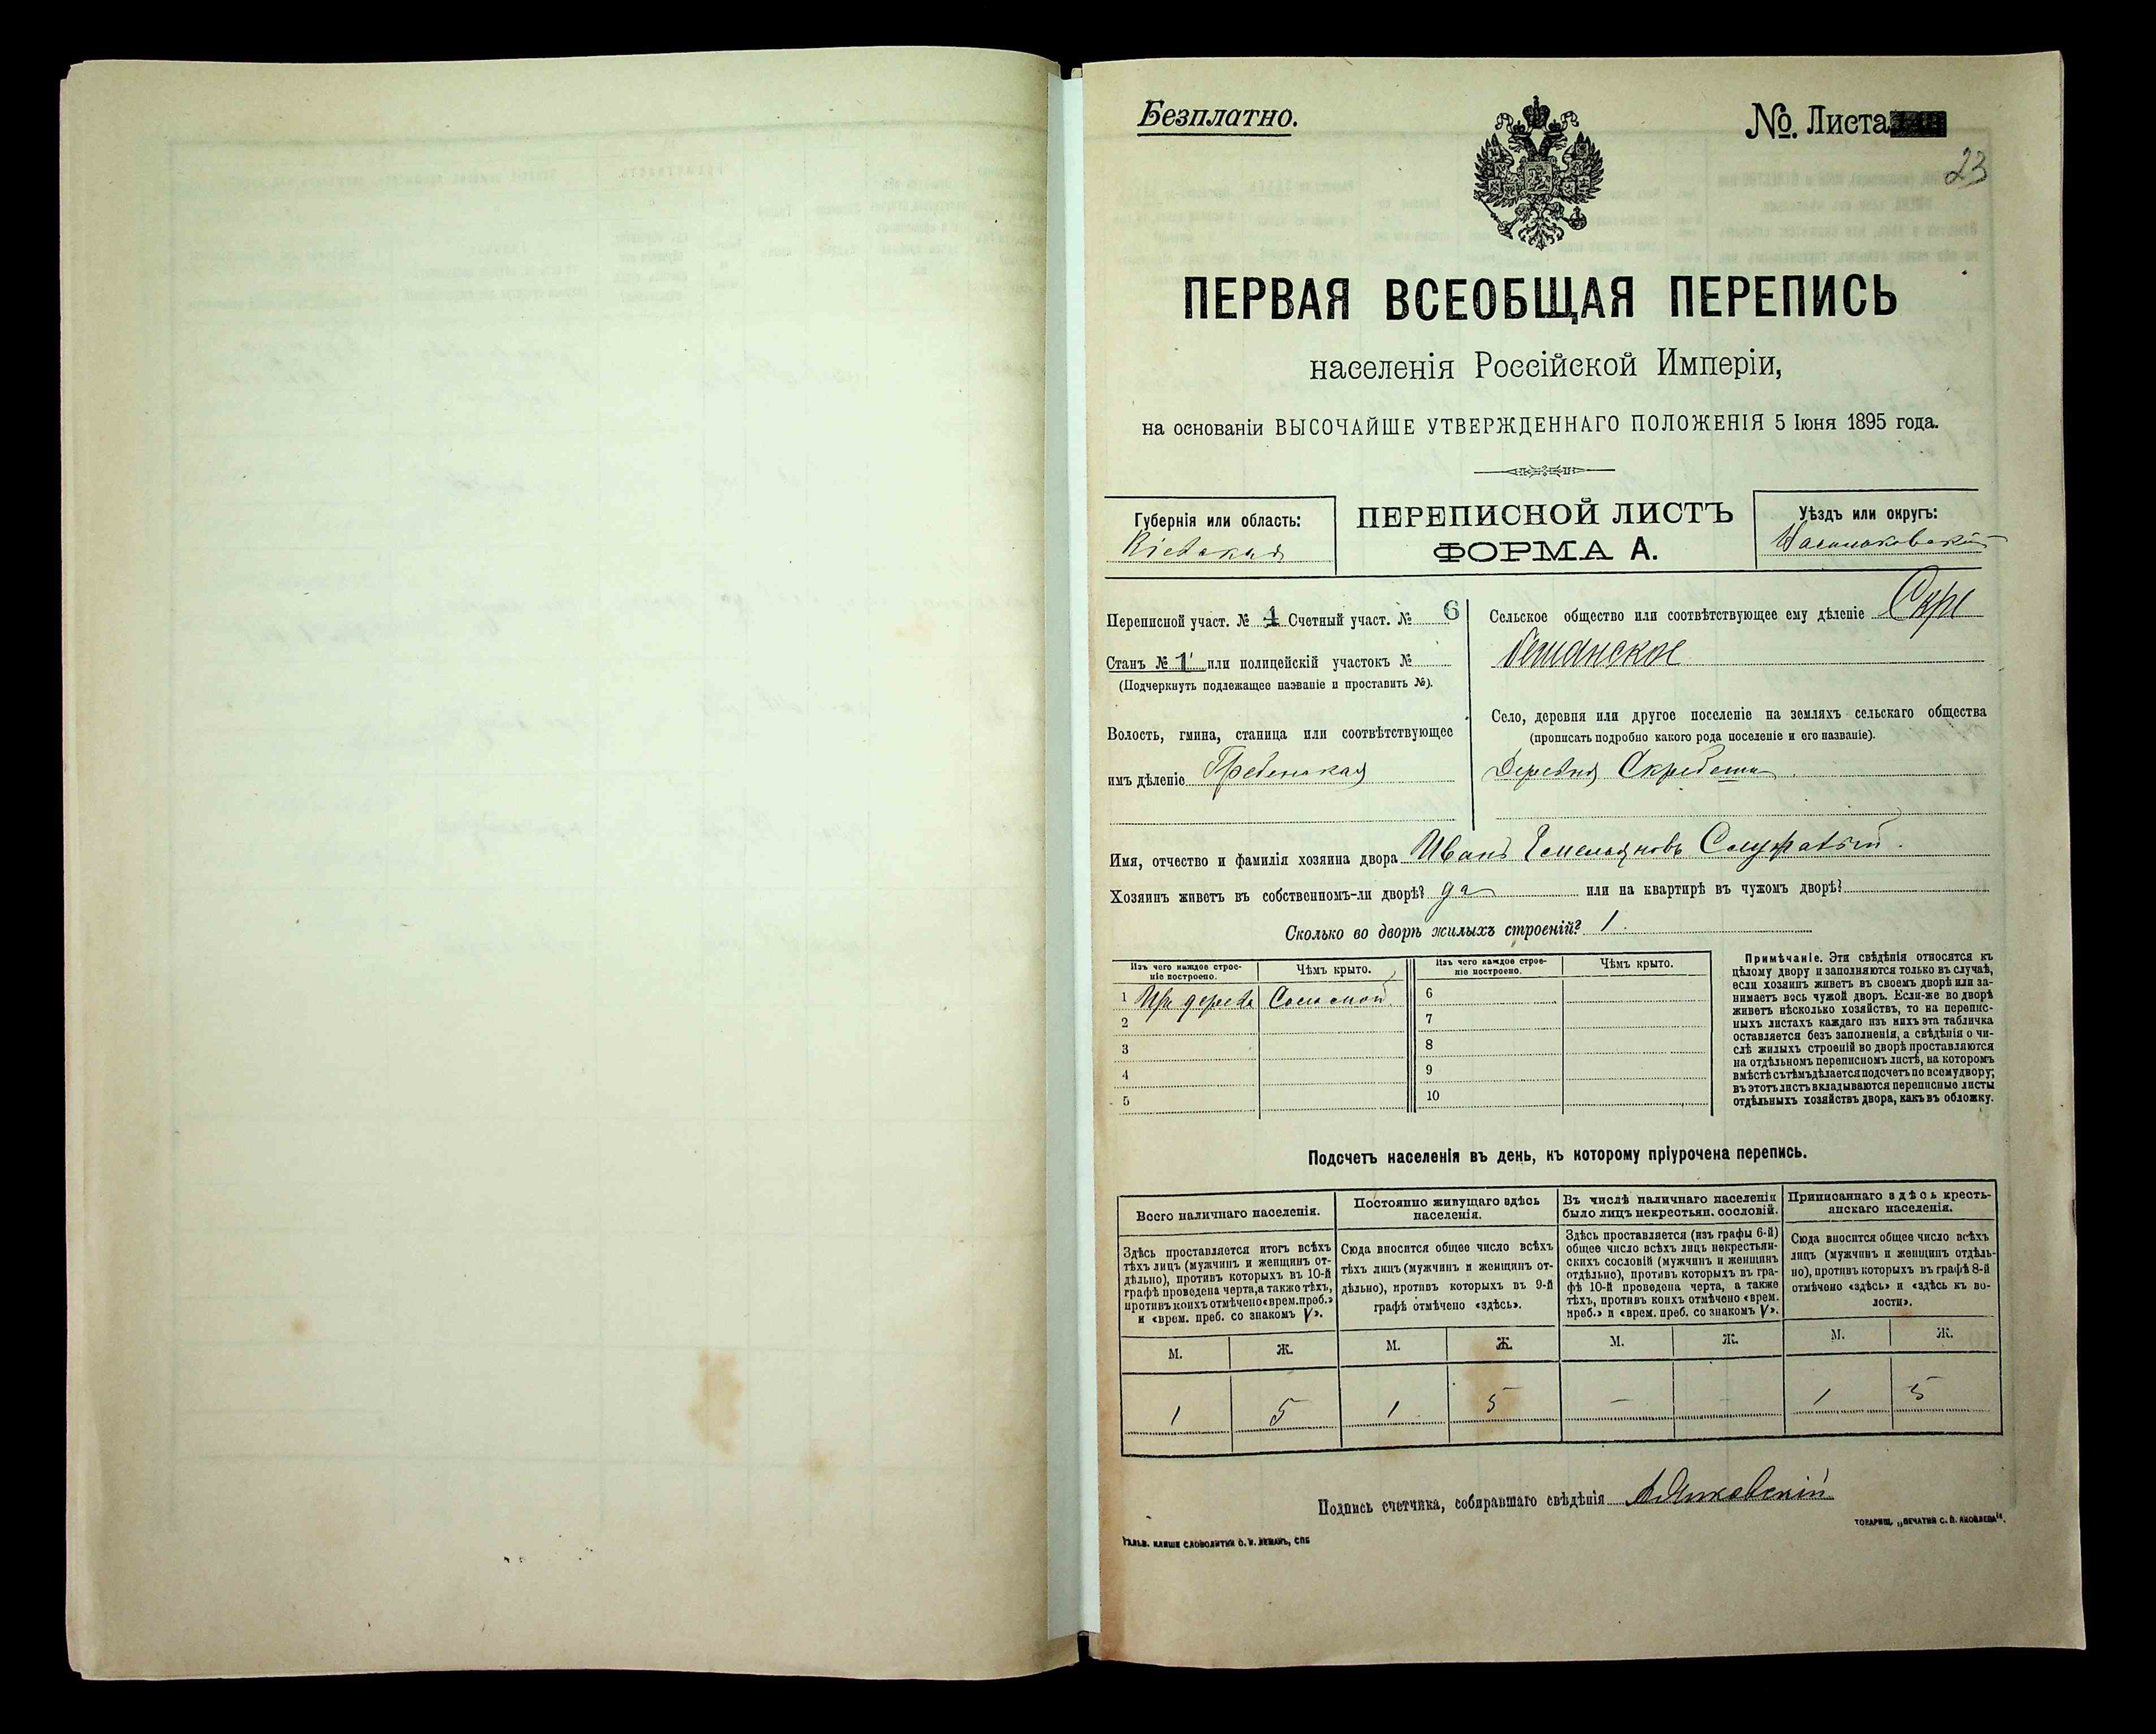 Безплатно.
№. Листа
23
ПЕРВАЯ ВСЕОБЩАЯ ПЕРЕПИСЬ
населенія Россійской Имперіи,
на основаніи ВЫСОЧАЙШЕ УТВЕРЖДЕННАГО ПОЛОЖЕНІЯ 5 Іюня 1895 года.
Губернія или область:
Кіевская
ПЕРЕПИСНОЙ ЛИСТЪ
ФОРМА А.
Уѣздъ или округъ:
Васильковскій
Переписной участ. № Счетный участ. № 6
Станъ № 1 или полицейскій участокъ №
(Подчеркнуть подлежащее названіе и проставить №).
Волость, гмина, станица или соотвѣтствующее
имъ дѣленіе Гребенская
Сельское общество или соотвѣтствующее ему дѣленіе
Село, деревня или другое поселеніе на земляхъ сельскаго общества
(прописать подробно какого рода поселеніе и его названіе).
Деревня Скребеши
Имя, отчество и фамилія хозяина двора Иванъ Емельяновъ
Хозяинъ живетъ въ собственномъ-ли дворѣ? да или на квартирѣ въ чужомъ дворѣ?
Сколько во дворѣ жилыхъ строеній? 1.
Изъ чего каждое строе-
ніе построено.
Чѣмъ крыто.
1 Изъ дерева Соломой
2
3
4
5
Изъ чего каждое строе-
ніе построено.
Чѣмъ крыто.
6
7
8
9
10
Примѣчаніе. Эти свѣдѣнія относятся къ
цѣлому двору и заполняются только въ случаѣ,
если хозяинъ живетъ въ своемъ дворѣ или за-
нимаетъ весь чужой дворъ. Если-же во дворѣ
живетъ нѣсколько хозяйствъ, то на перепис-
ныхъ листахъ каждаго изъ нихъ эта табличка
оставляется безъ заполненія, а свѣдѣнія о чи-
слѣ жилыхъ строеній во дворѣ проставляются
на отдѣльномъ переписномъ листѣ, на которомъ
вмѣстѣ съ тѣмъ дѣлается подсчетъ по всему двору;
въ этотъ листъ вкладываются переписные листы
отдѣльныхъ хозяйствъ двора, какъ въ обложку.
Подсчетъ населенія въ день, къ которому пріурочена перепись.
Всего наличнаго населенія.
Здѣсь проставляется итогъ всѣхъ
тѣхъ лицъ (мужчинъ и женщинъ от-
дѣльно), противъ которыхъ въ 10-й
графѣ проведена черта, а также тѣхъ,
противъ коихъ отмѣчено «врем. преб.»
и «врем. преб. со знакомъ V».
М. Ж.
1 5
Постоянно живущаго здѣсь
населенія.
Сюда вносится общее число всѣхъ
тѣхъ лицъ (мужчинъ и женщинъ от-
дѣльно), противъ которыхъ въ 9-й
графѣ отмѣчено «здѣсь».
М. Ж.
1 5
Въ числѣ наличнаго населенія
было лицъ некрестьян. сословій.
Здѣсь проставляется (изъ графы 6-й)
общее число всѣхъ лицъ некрестьян-
скихъ сословій (мужчинъ и женщинъ
отдѣльно), противъ которыхъ въ гра-
фѣ 10-й проведена черта, а также
тѣхъ, противъ коихъ отмѣчено «врем.
преб.» и «врем. преб. со знакомъ V».
М. Ж.
– –
Приписаннаго здѣсь кресть-
янскаго населенія.
Сюда вносится общее число всѣхъ
лицъ (мужчинъ и женщинъ отдѣль-
но), противъ которыхъ въ графѣ 8-й
отмѣчено «здѣсь» и «здѣсь къ во-
лости».
М. Ж.
1 5
Подпись счетчика, собиравшаго свѣдѣнія
Гальв. клише словолитни О. И. Леманъ, СПБ
ТОВАРИЩ. „ПЕЧАТНЯ С. П. ЯКОВЛЕВА“.